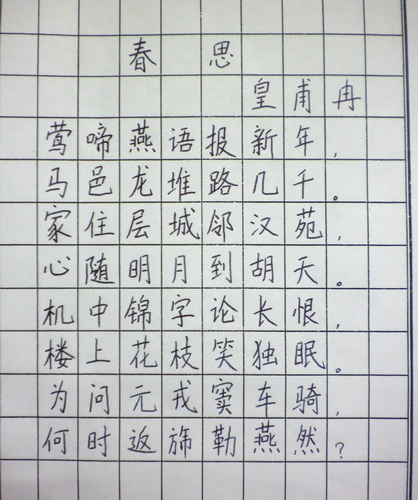 春思
皇甫冉
莺啼燕语报新年,
马邑龙堆路几千。
家住层城邻汉苑,
心随明月到胡天。
机中锦字论长恨,
楼上花枝笑独眠。
为问元戎窦车骑,
何时返旆勒燕然?